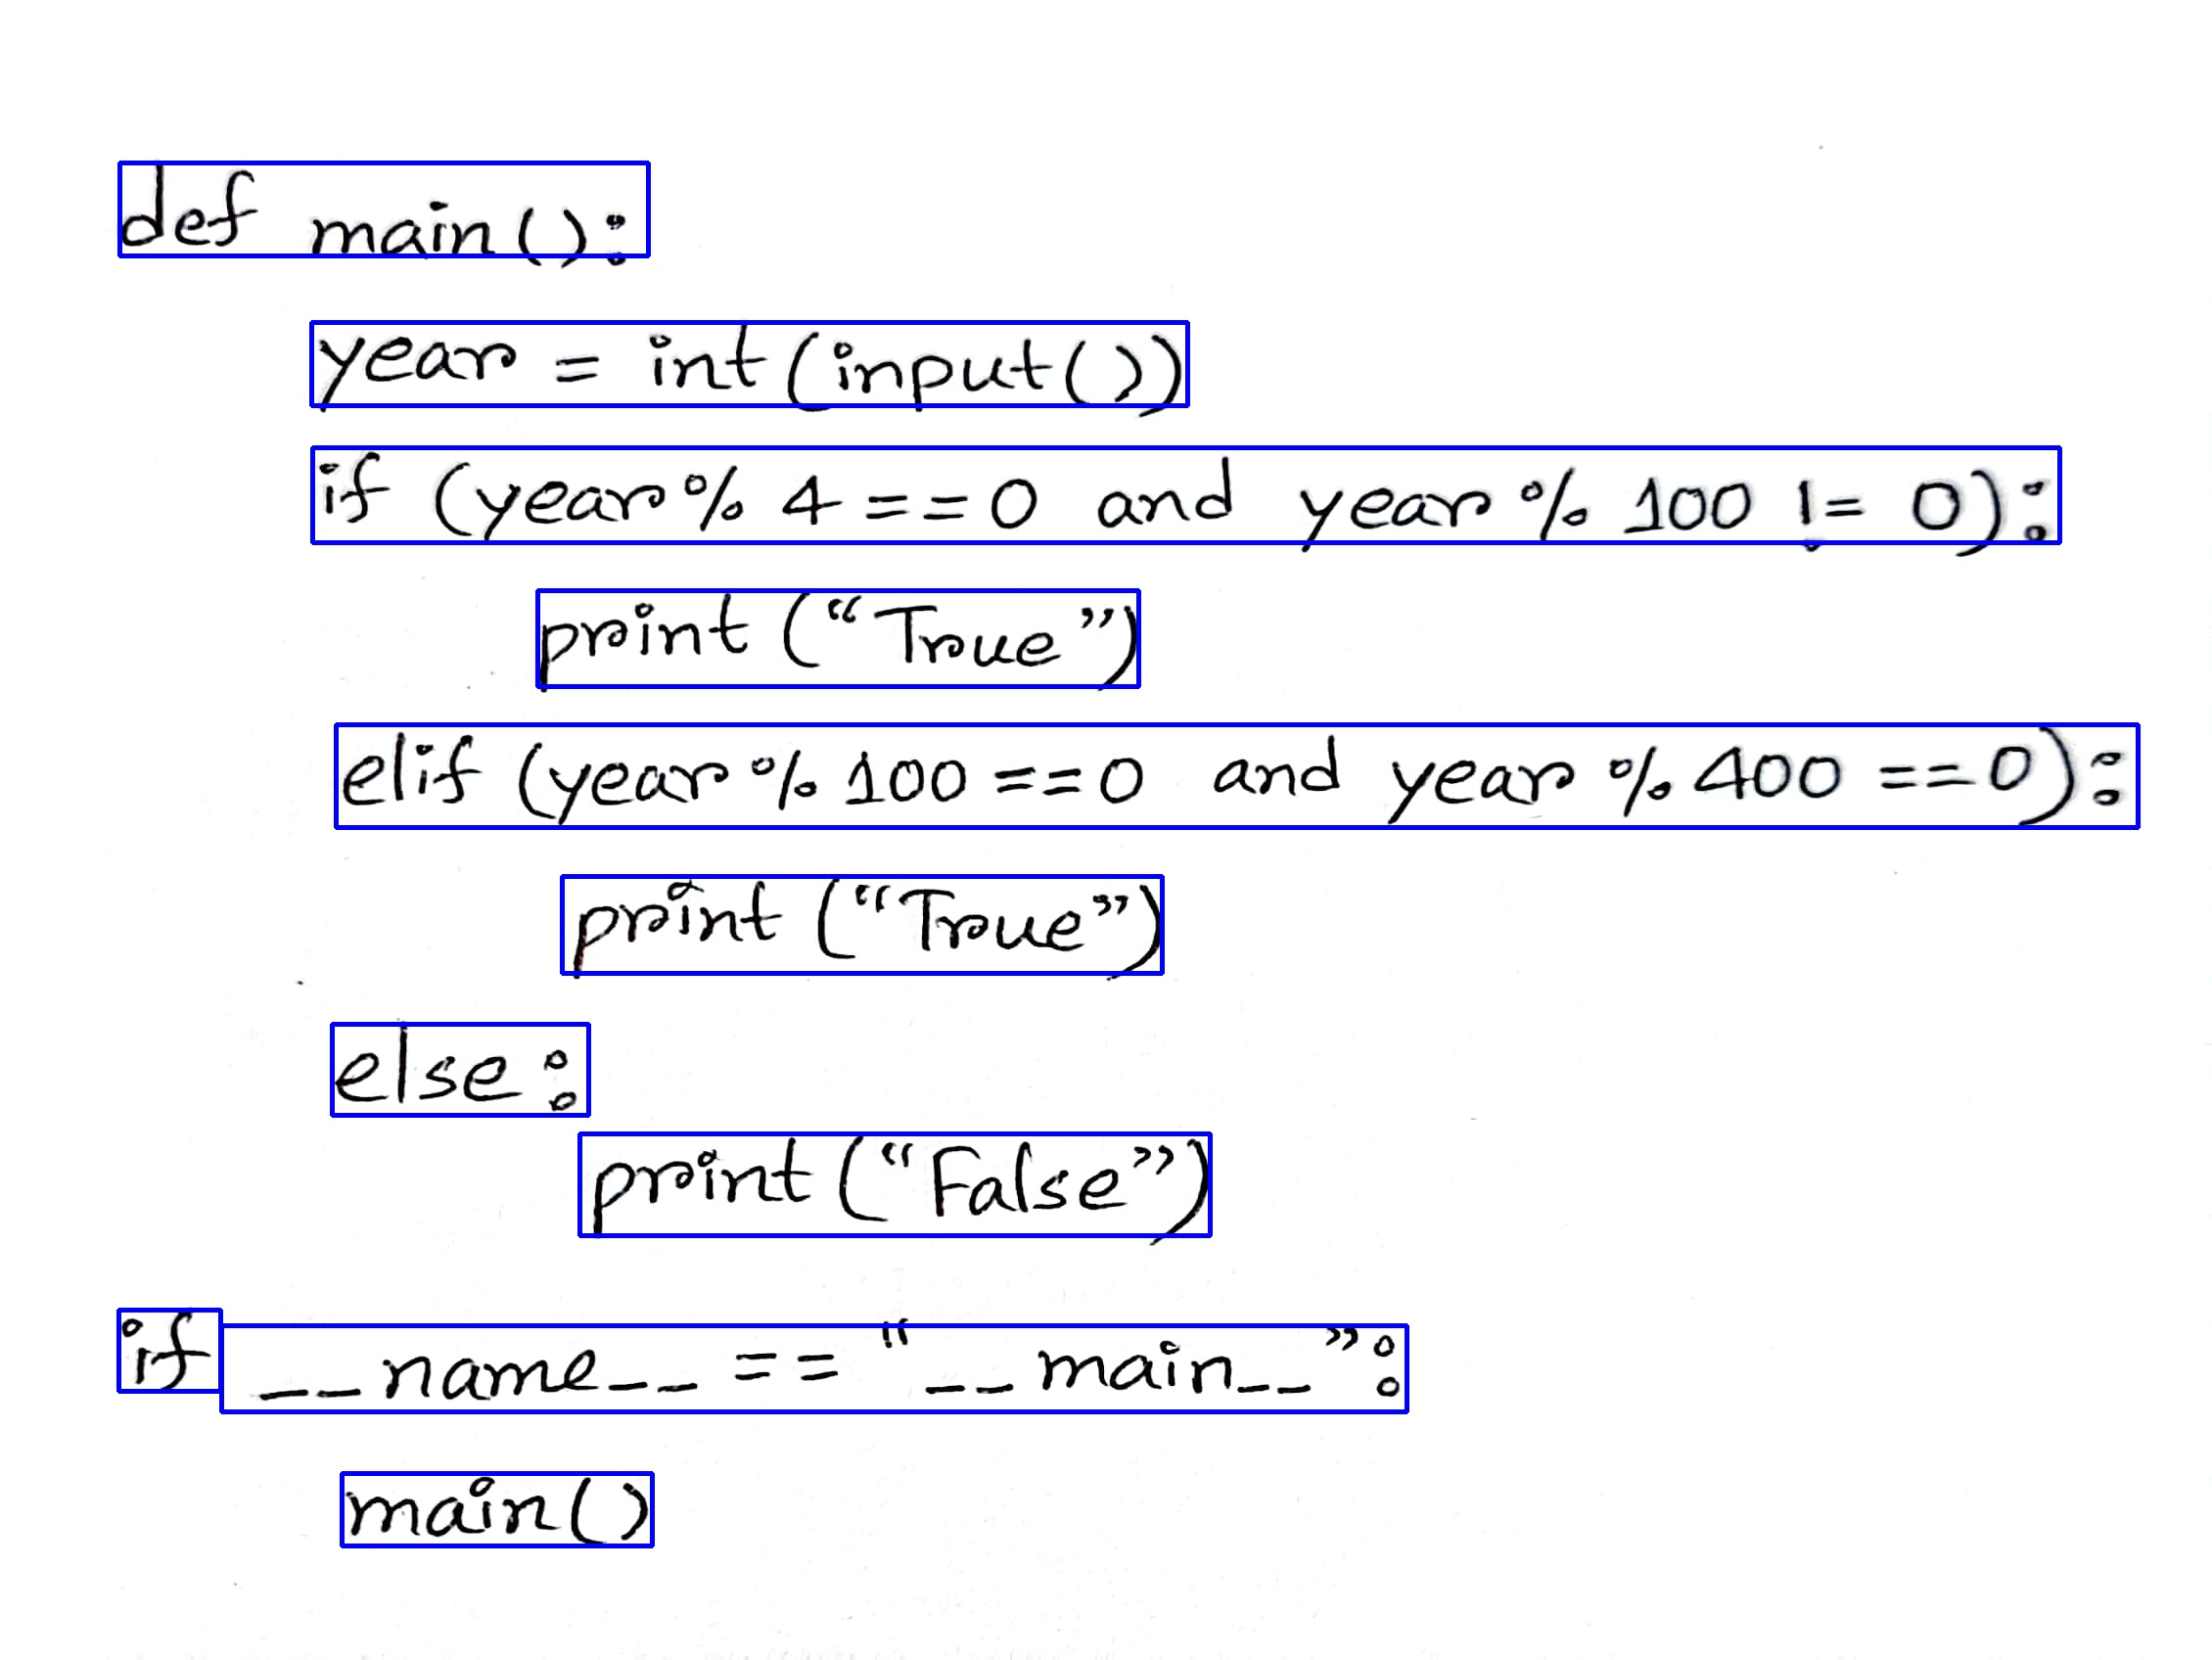 def main():
    year = int(input())
    if (year % 4 == 0 and year % 100 != 0):
        print (“True”)
    elif (year % 100 == 0 and year % 400 == 0):
        print (“True”)
    else:
        print (“False”)
if __name__ == “__main__”:
    main()